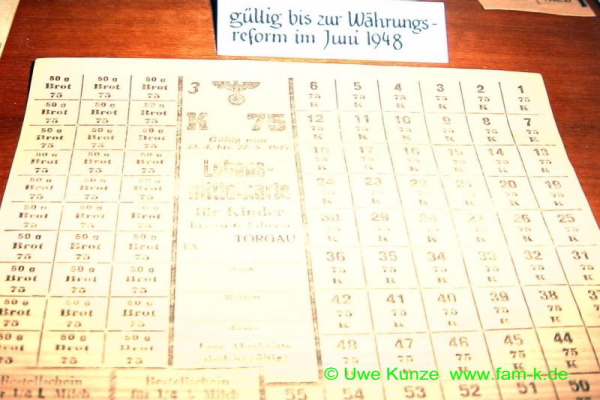 gültig bis zur Währungs-
reform im Juni 1948
50 g 50 g 50 g
Brot Brot Brot
75 75 75
50 g 50 g 50 g
Brot Brot Brot
75 75 75
50 g 50 g 50 g
Brot Brot Brot
75 75 75
50 g 50 g 50 g
Brot Brot Brot
75 75 75
50 g 50 g 50 g
Brot Brot Brot
75 75 75
50 g 50 g 50 g
Brot Brot Brot
75 75 75
50 g 50 g 50 g
Brot Brot Brot
75 75 75
50 g 50 g 50 g
Brot Brot Brot
75 75 75
50 g 50 g 50 g
Brot Brot Brot
75 75 75
50 g 50 g 50 g
Brot Brot Brot
75 75 75
3
K 75
Gültig vom
Lebens-
mittelkarte
für Kinder
TORGAU
EA
6 5 4 3 2 1
75 75 75 75 75 75
K K K K K K
12 11 10 9 8 7
75 75 75 75 75 75
K K K K K K
18 17 16 15 14 13
75 75 75 75 75 75
K K K K K K
24 23 22 21 20 19
75 75 75 75 75 75
K K K K K K
30 29 28 27 26 25
75 75 75 75 75 75
K K K K K K
36 35 34 33 32 31
75 75 75 75 75 75
K K K K K K
42 41 40 39 38 37
75 75 75 75 75
K K K K K
48 47 46 45 44
75 75 75 75 75
K K K K K
55 54 53 52 51 50
Bestellschein Bestellschein
für 1/4 L Milch für 1/4 L Milch
© Uwe Kunze www.fam-k.de